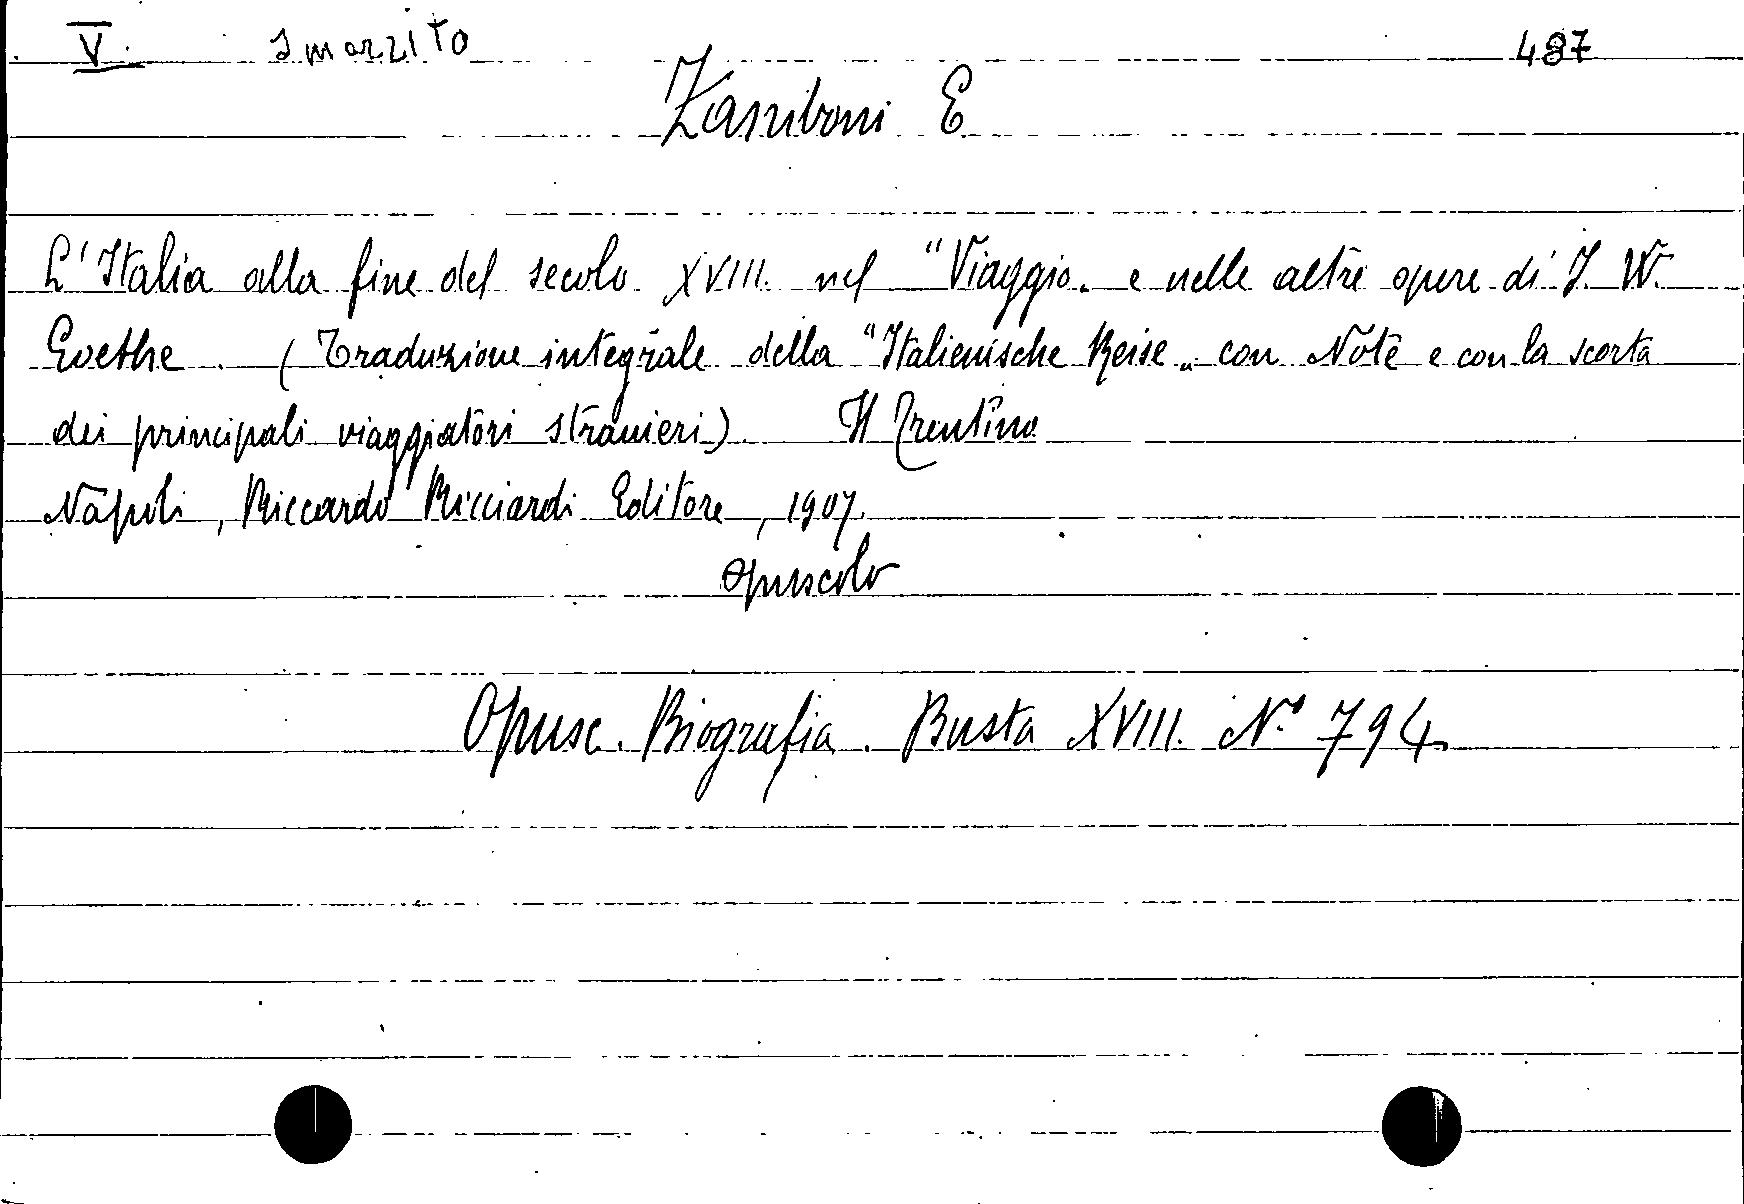 V. Smarrito 487
Zaniboni E
L'Italia alla fine del secolo XVIII. nel "Viaggio„ e nelle altre opere di J. W.
Goethe. (Traduzione integrale della "Italienische Reise„ con Note e con la scorta
dei principali viaggiatori stranieri) Il Trentino
Napoli, Riccardo Ricciardi Editore, 1907.
opuscolo
Opusc. Biografia. Busta XVIII. N.º 794.